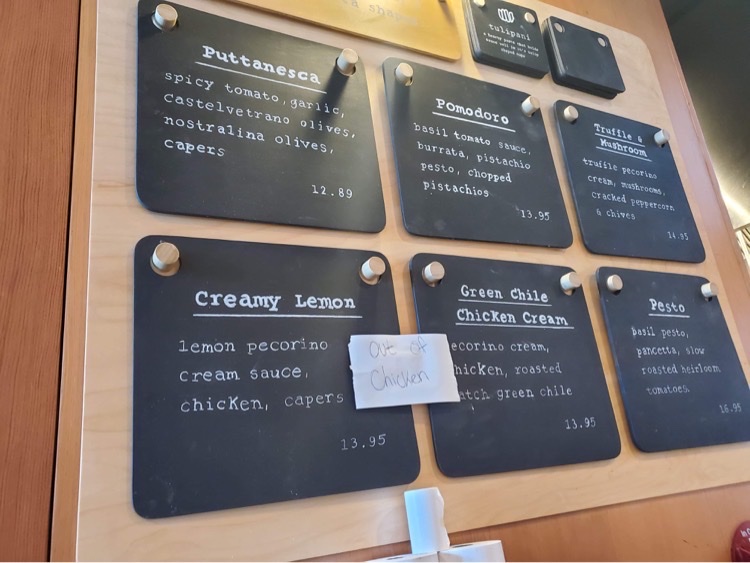 a shap
tulipani
Puttanesca
spicy tomato, garlic,
castelvetrano olives,
nostralina olives,
capers
12.89
Pomodoro
basil tomato sauce,
burrata, pistachio
pesto, chopped
pistachios
13.95
Truffle &
Mushroom
truffle pecorino
cream, mushrooms,
cracked peppercorn
& chives
14.95
Creamy Lemon
lemon pecorino
cream sauce,
chicken, capers
13.95
out of
Chicken
Green Chile
Chicken Cream
ecorino cream,
hicken, roasted
atch green chile
13.95
Pesto
basil pesto,
pancetta, slow
roasted heirloom
tomatoes.
16.95